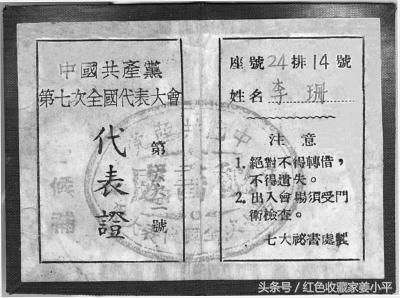 中國共產黨
第七次全國代表大會
代表證
第 號
候補
座號24排14號
姓名 李珊
注意
1. 絕對不得轉借，
不得遺失。
2. 出入會場須受門
衛檢查。
七大祕書處製
头条号 / 红色收藏家姜小平